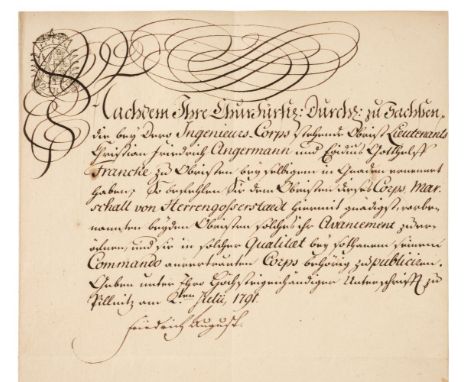 Nachdem Ihre Churfürstl: Durchl: zu Sachsen,
die bey Dero Ingenieurs Corps stehende Obrist Lieutenants
Christian Friedrich Angermann und Egidius Gotthelff
Francke zu Obristen bey selbigem in Gnaden ernennet
haben; So befehlen Sie dem Obristen dieses Corps Mar,,
schall von Herrengosserstædt hiermit gnädigst, vorbe,
nannten beyden Obristen solches ihr Avancement zu er,
öfnen, und sie in solcher Qualitæt bey sothanem seinem
Commando anvertrauten Corps behörig zu publiciren.
Geben unter Ihro Höchsteigenhändiger Unterschrifft zu
Pillnitz am ten 1791.
Friedrich August.